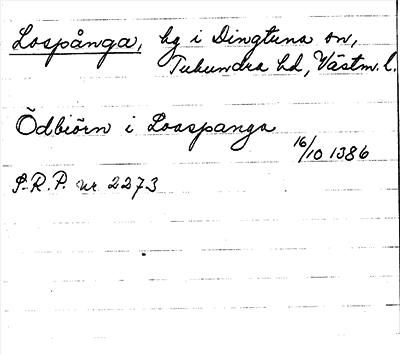 Lospånga, by i Dingtuna sn,
Tuhundra hd, Västm. l.
Ödbiörn i Loospanga
16/10 1386
S.R.P. nr 2273